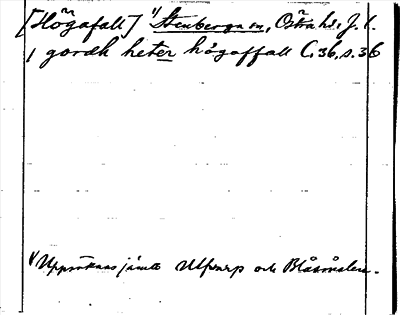 [Högafall] 1) Stenberga sn, Östra hd, J. l.
1 gordh heter högaffall C. 36, s. 36
1) Uppräknas jämte Ulftorp och Blåsmålen.